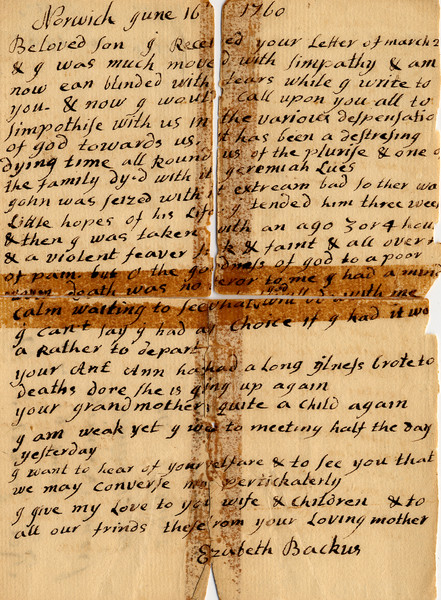 Norwich June 16 1760
Beloved Son J Received your Letter of march 2
& J was much moved with simpathy & am
now ean blinded with tears while J write to
you & now J would call upon you all to
simpothise with us in the various despensatio
of god towards us. it has been a destresing
dying time all Round us of the plurise & one of
the family dyed with it Jeremiah Lues
John was seized with it extream bad so ther was
Little hopes of his Life J tended him three week
& then J was taken with an ago 3 or 4 hou
& a violent feaver sick & faint & all over
of pain but o the goodness of god to a poor
worm death was no teror to me J had a mind
calm waiting to see what with me
J cant say J had a choice if J had it wo
a Rather to depart
your Ant Ann has had a Long illness brote to
deaths dore she is giting up again
your grandmother quite a child again
J am weak yet J went to meeting half the day
yesterday
J want to hear of your welfare & to see you that
we may converse more pertickalerly
J give my Love to your wife & children & to
all our frinds these from your Loving mother
Elizabeth Backus